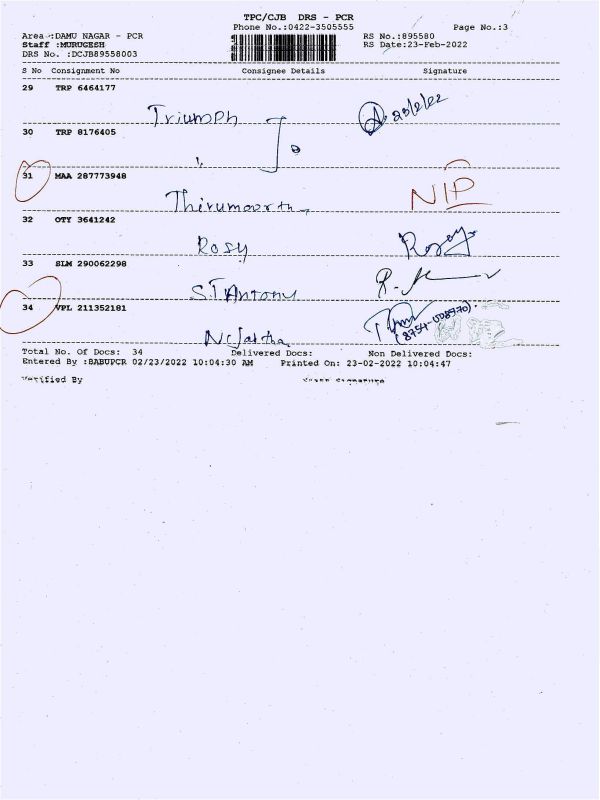 TPC/CJB DRS - PCR
Phone No.:0422-3505555
Page No.:3
Area :DAMU NAGAR - PCR
RS No.:895580
Staff :MURUGESH
RS Date:23-Feb-2022
DRS No. :DCJB89558003
S No Consignment No Consignee Details Signature
29 TRP 6464177
Triumph 23/2/22
30 TRP 8176405
31 MAA 287773948
Thirumoorthy NIP
32 OTY 3641242
Rosy Rosy
33 SLM 290062298
S.T Antony
34 VPL 211352181
Total No. Of Docs: 34 Delivered Docs: Non Delivered Docs:
Entered By :BABUPCR 02/23/2022 10:04:30 AM Printed On: 23-02-2022 10:04:47
Verified By